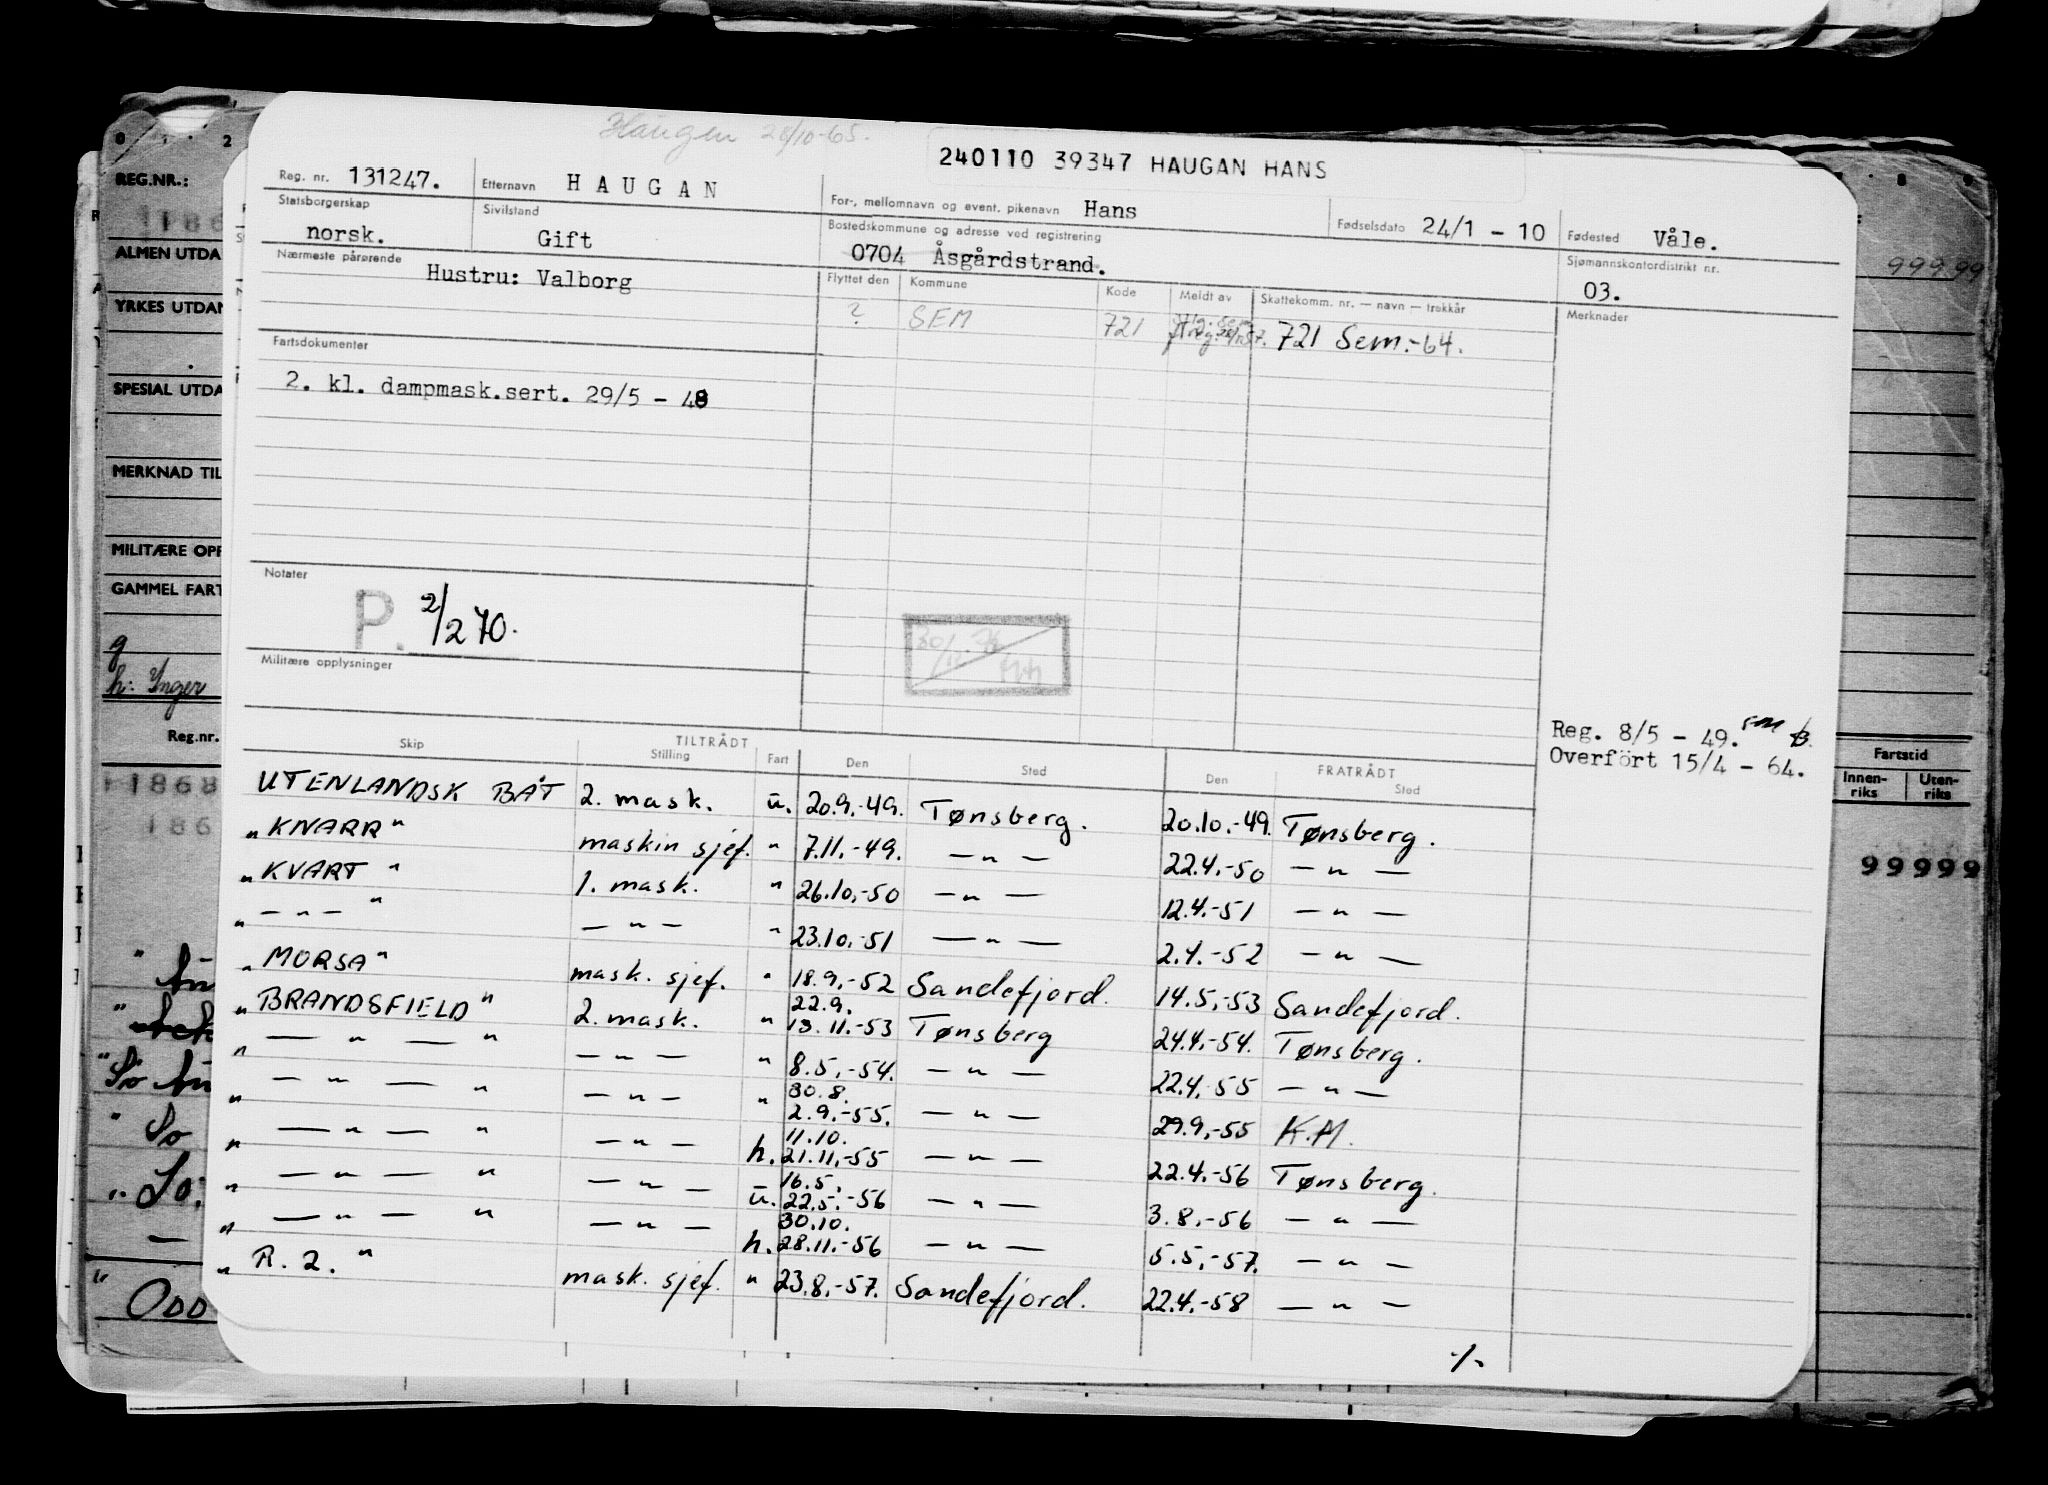 Haugen 28/10-65.
240110 39347 HAUGAN HANS
Reg. nr. 131247. Etternavn HAUGAN For-, mellomnavn og event. pikenavn Hans Fødselsdato 24/1 - 10 Fødested Våle.
Statsborgerskap norsk. Sivilstand Gift Bostedskommune og adresse ved registrering 0704 Åsgårdstrand. Sjømannskontordistrikt nr. 03.
Nærmeste pårørende Hustru: Valborg Flyttet den Kommune Kode Meldt av Skattekomm. nr. — navn — trekkår Merknader
? SEM 721 721 Sem.-64.
Fartsdokumenter
2. kl. dampmask.sert. 29/5 - 48
Notater
P. 2/2 70.
Militære opplysninger
Reg. 8/5 - 49.
Overfört 15/4 - 64.
TILTRÅDT FRATRÅDT
Skip Stilling Fart Den Sted Den Sted
UTENLANDSK BÅT 2. mask. u. 20.9.-49. Tønsberg. 20.10.-49. Tønsberg.
"KNARR" maskin sjef. " 7.11.-49. — " — 22.4.-50 — " —
"KVART" 1. mask. " 26.10.-50 — " — 12.4.-51 — " —
" — " — " — " — " 23.10.-51 — " — 2.4.-52 — " —
"MORSA" mask. sjef. " 18.9.-52 Sandefjord. 14.5.-53 Sandefjord.
"BRANDSFIELD" 2. mask. " 22.9. 13.11.-53 Tønsberg 24.4.-54. Tønsberg.
" — " — " — " — " 8.5.-54. — " — 22.4.-55 — " —
" — " — " — " — " 30.8. 2.9.-55. — " — 29.9.-55 K.M.
" — " — " — " — h. 11.10. 21.11.-55 — " — 22.4.-56 Tønsberg.
" — " — " — " — u. 16.5. 22.5.-56 — " — 3.8.-56 — " —
" — " — " — " — h. 30.10. 28.11.-56 — " — 5.5.-57. — " —
"R. 2." mask. sjef. " 23.8.-57. Sandefjord. 22.4.-58 — " —
REG.NR.:
ALMEN UTDA
YRKES UTDAN
SPESIAL UTDA
MERKNAD TIL
MILITÆRE OPP
GAMMEL FART
h: Inger
Reg.nr.
1868
999.99
Fartstid
Innen-riks Uten-riks
99999